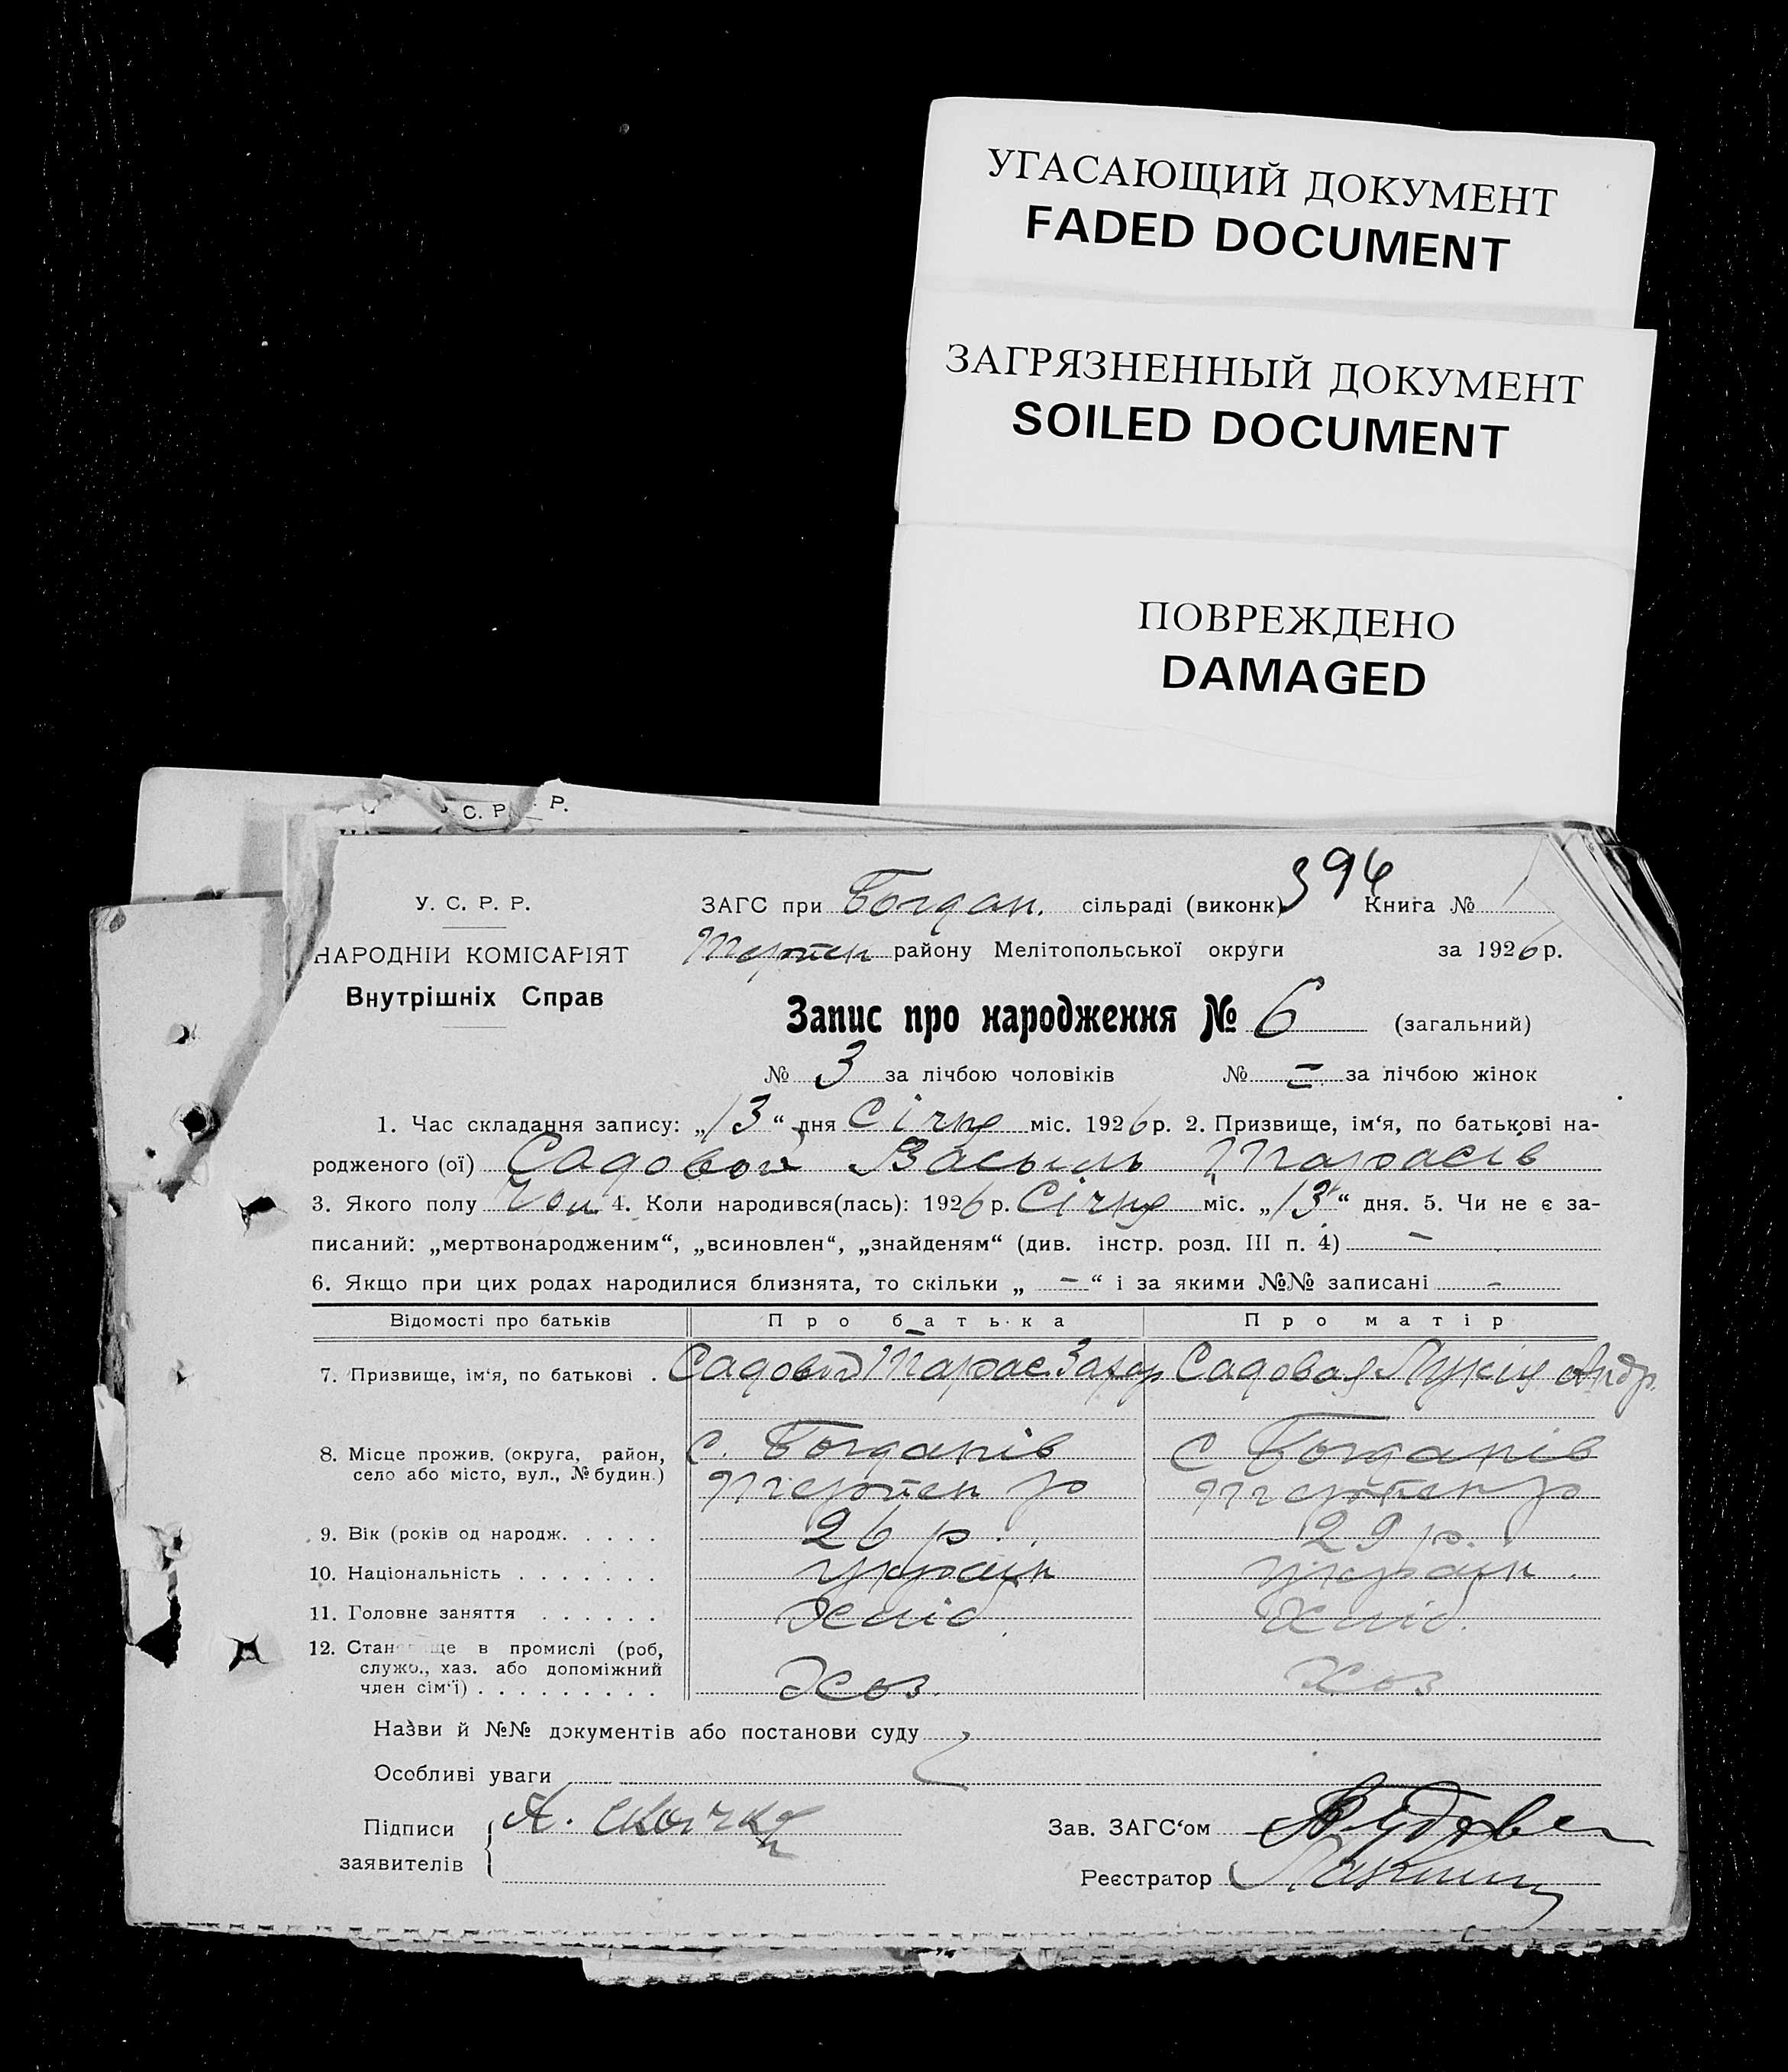 УГАСАЮЩИЙ ДОКУМЕНТ
FADED DOCUMENT
ЗАГРЯЗНЕННЫЙ ДОКУМЕНТ
SOILED DOCUMENT
ПОВРЕЖДЕНО
DAMAGED
С. Р. Р.
394
У. С. Р. Р.
НАРОДНІЙ КОМІСАРІЯТ
Внутрішніх Справ
ЗАГС при Богдан. сільраді (виконк) Книга №
Терпен району Мелітопольської округи за 1926 р.
Запис про народження № 6 (загальний)
№ 3 за лічбою чоловіків № — за лічбою жінок
1. Час складання запису: „13“ дня Січня міс. 1926 р. 2. Призвище, ім‘я, по батькові на-
родженого (ої) Садовой Василь Тарасів
3. Якого полу Чол 4. Коли народився(лась): 1926 р. Січня міс. „13“ дня. 5. Чи не є за-
писаний: „мертвонародженим“, „всиновлен“, „знайденям“ (див. інстр. розд. III п. 4) —
6. Якщо при цих родах народилися близнята, то скільки „ — “ і за якими №№ записані —
Відомості про батьків Про батька Про матір
7. Призвище, ім‘я, по батькові . Садовой Тарас Захар Садовая Лукія Андр.
8. Місце прожив. (округа, район,
село або місто, вул., № будин.)
с. Богданів с Богданів
Терпен р Терпен р
9. Вік (років од народж. . . . . 26 р. 29 р.
10. Національність . . . . . . . україн україн.
11. Головне заняття . . . . . . Хліб. Хліб.
12. Стан ще в промислі (роб,
служб., хаз. або допоміжний
член сім‘ї) . . . . . . . . . Хоз. Хоз
Назви й №№ документів або постанови суду
Особливі уваги
Підписи
заявителів
А.
Зав. ЗАГС‘ом
Реєстратор